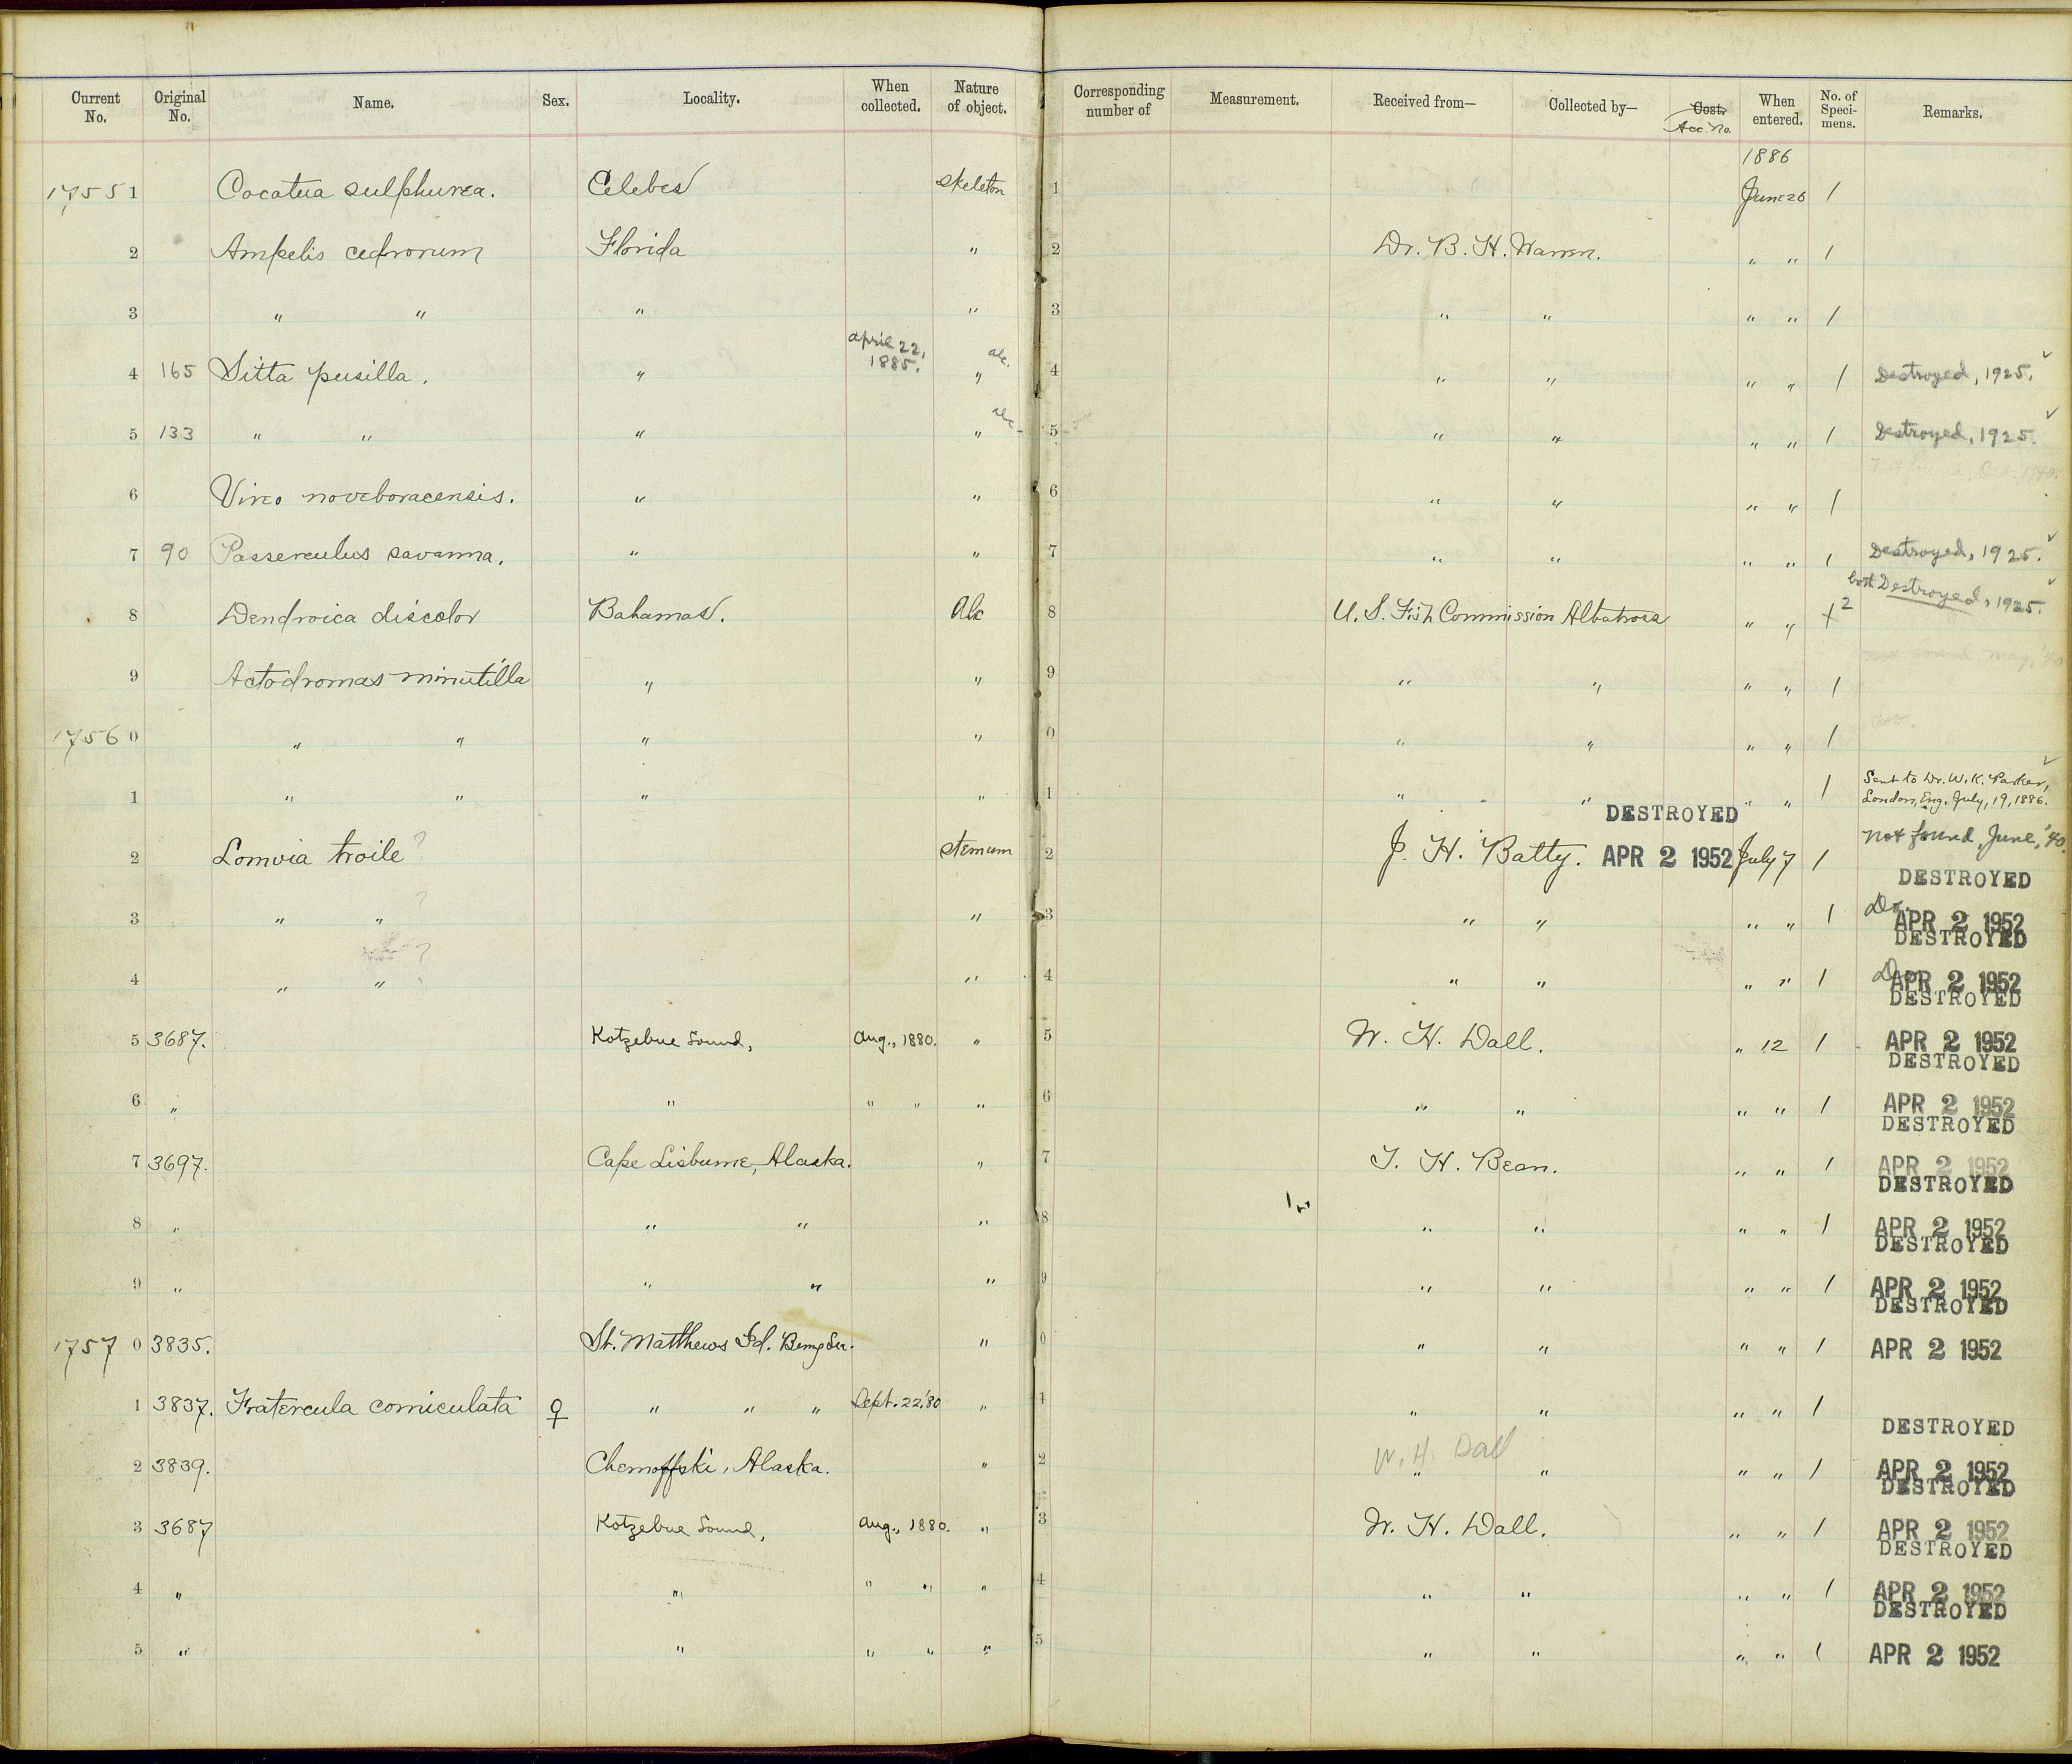 Current No. Original No. Name. Sex. Locality. When collected. Nature of object. Corresponding number of Measurement. Received from— Collected by— Cost. Acc. No. When entered. No. of Specimens. Remarks.
1886
17551 Cocatua sulphurea. Celebes skeleton 1 June 26 1
2 Ampelis cedrorum Florida " 2 Dr. B. H. Warren. " " 1
3 " " " " 3 " " " " 1
4 165 Sitta pusilla. " April 22, 1885. " alc. 4 " " " " 1 Destroyed, 1925. ✓
5 133 " " " " alc. 5 " " " " 1 Destroyed, 1925. ✓
6 Vireo noveboracensis. " " 6 " " " " 1 Oct. 1940.
7 90 Passerculus savanna. " " 7 " " " " 1 Destroyed, 1925. ✓
8 Dendroica discolor Bahamas. Alc 8 U. S. Fish Commission Albatross " " 2 both Destroyed, 1925. ✓
9 Actodromas minutilla " " 9 " " " " 1 not found, May, '40
17560 " " " " 0 " " " " 1 Do.
1 " " " " 1 " " " " 1 Sent to Dr. W. K. Parker, London, Eng. July, 19, 1886. ✓
2 Lomvia troile ? sternum 2 J. H. Batty. DESTROYED APR 2 1952 July 7 1 not found, June, '40.
DESTROYED
3 " " ? " 3 " " " " 1 Do. APR 2 1952
DESTROYED
4 " " ? " 4 " " " " 1 Do. APR 2 1952
DESTROYED
5 3687. Kotzebue Sound, Aug., 1880. " 5 W. H. Dall. " 12 1 APR 2 1952
DESTROYED
6 " " " " " 6 " " " " 1 APR 2 1952
DESTROYED
7 3697. Cape Lisburne, Alaska. " 7 T. H. Bean. " " 1 APR 2 1952
DESTROYED
8 " " " " 8 " " " " 1 APR 2 1952
DESTROYED
9 " " " " 9 " " " " 1 APR 2 1952
DESTROYED
17570 3835. St. Matthews Id. Bering Sea. " 0 " " " " 1 APR 2 1952
1 3837. Fratercula corniculata ♀ " " " Sept. 22 '80 " 1 " " " " 1
DESTROYED
2 3839. Chernoffski, Alaska. " 2 W. H. Dall " " " " 1 APR 2 1952
DESTROYED
3 3687 Kotzebue Sound, Aug., 1880. " 3 W. H. Dall. " " 1 APR 2 1952
DESTROYED
4 " " " " " 4 " " " " 1 APR 2 1952
DESTROYED
5 " " " " " 5 " " " " 1 APR 2 1952